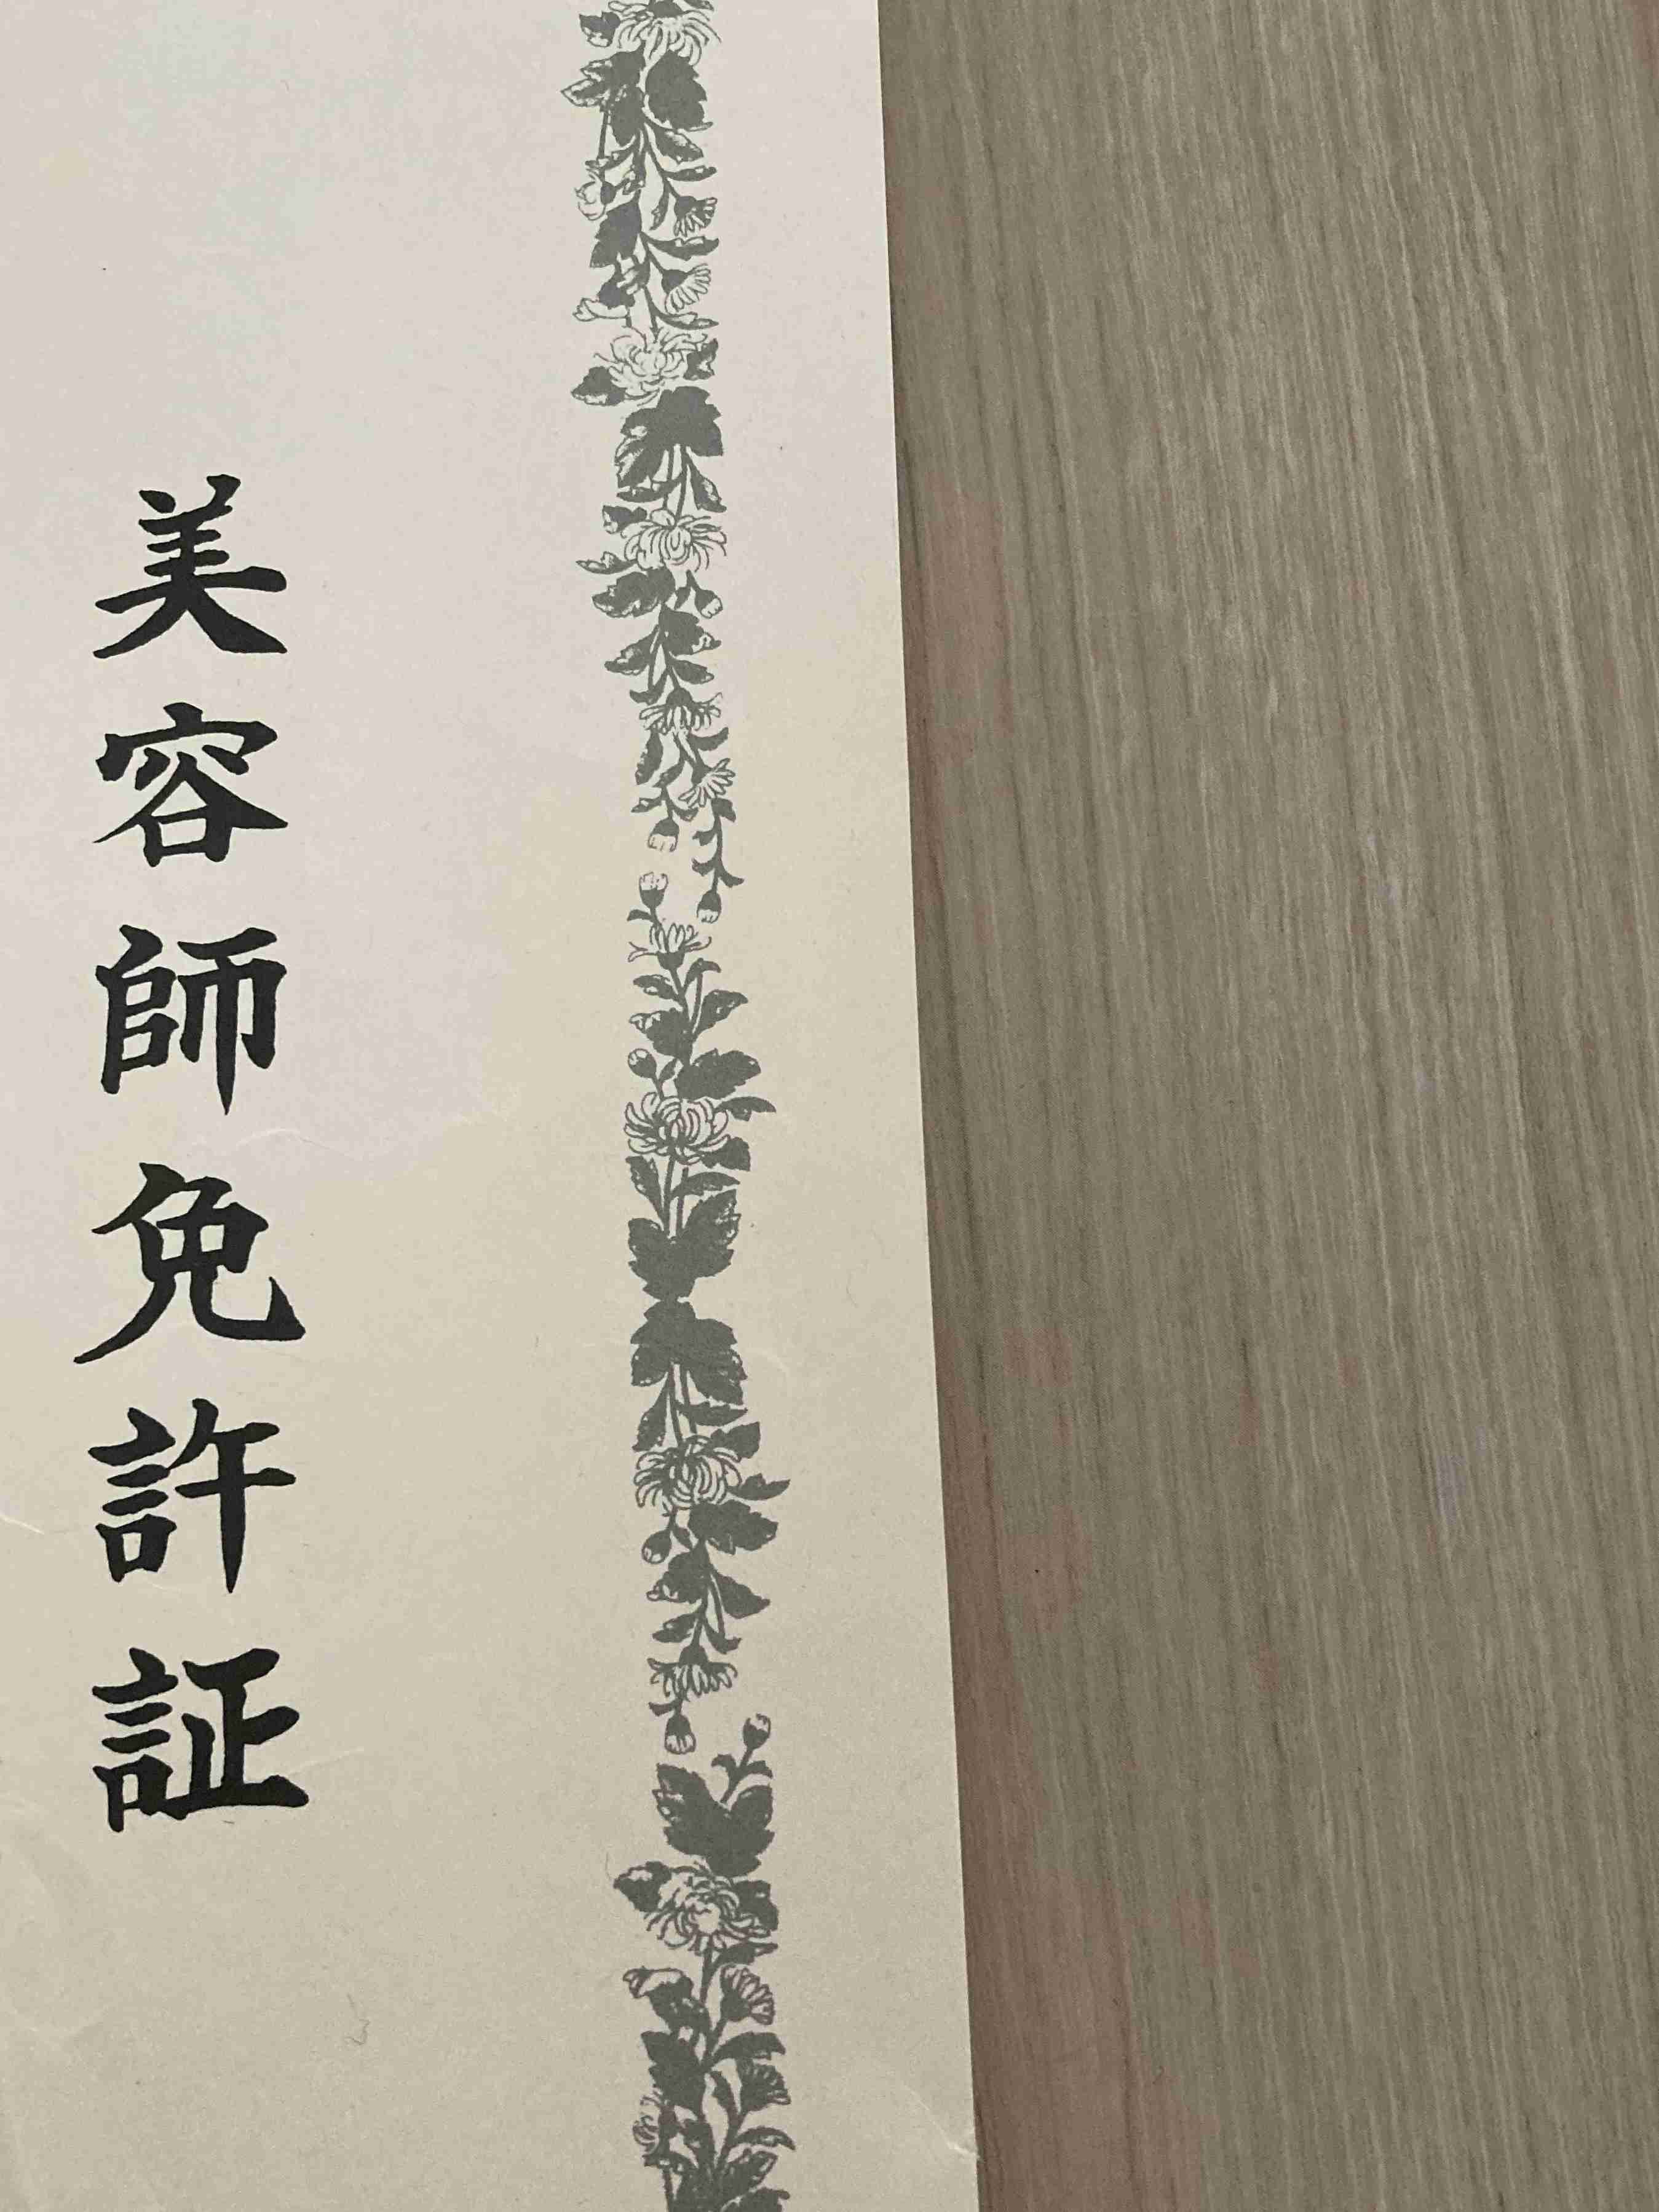 美容師免許証